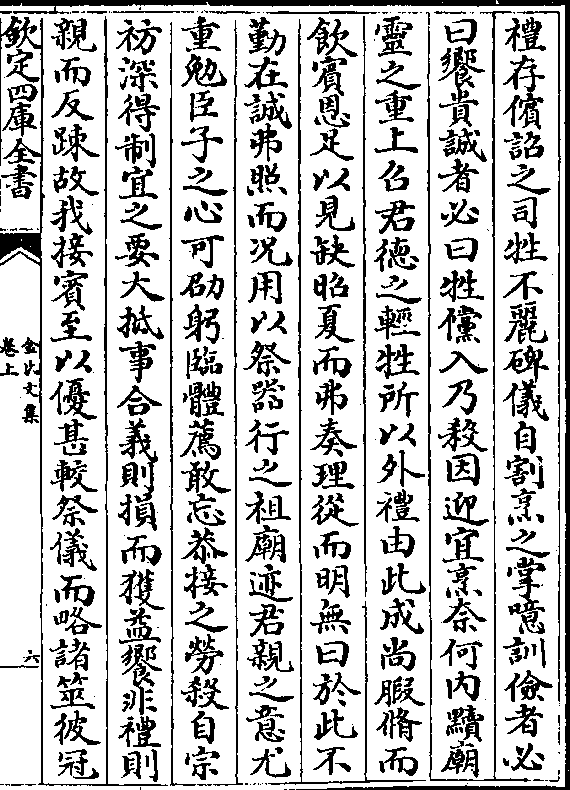 禮存儐詔之司牲不麗碑儀自割烹之掌噫訓儉者必
曰饗貴誠者必曰牲儻入乃殺因迎宜烹奈何内黷廟
靈之重上召君德之輕牲所以外禮由此成尚腶脩而
飲賓恩足以見缺昭夏而弗奏理從而明無曰於此不
勤在誠弗照而况用以祭器行之祖廟迹君親之意尤
重勉臣子之心可劭躬臨體薦敢忘恭接之勞殺自宗
祊深得制宜之要大抵事合義則損而獲益饗非禮則
親而反踈故我接賓至以優甚較祭儀而略諸筮彼冠
欽定四庫全書
金氏文集
卷上
六